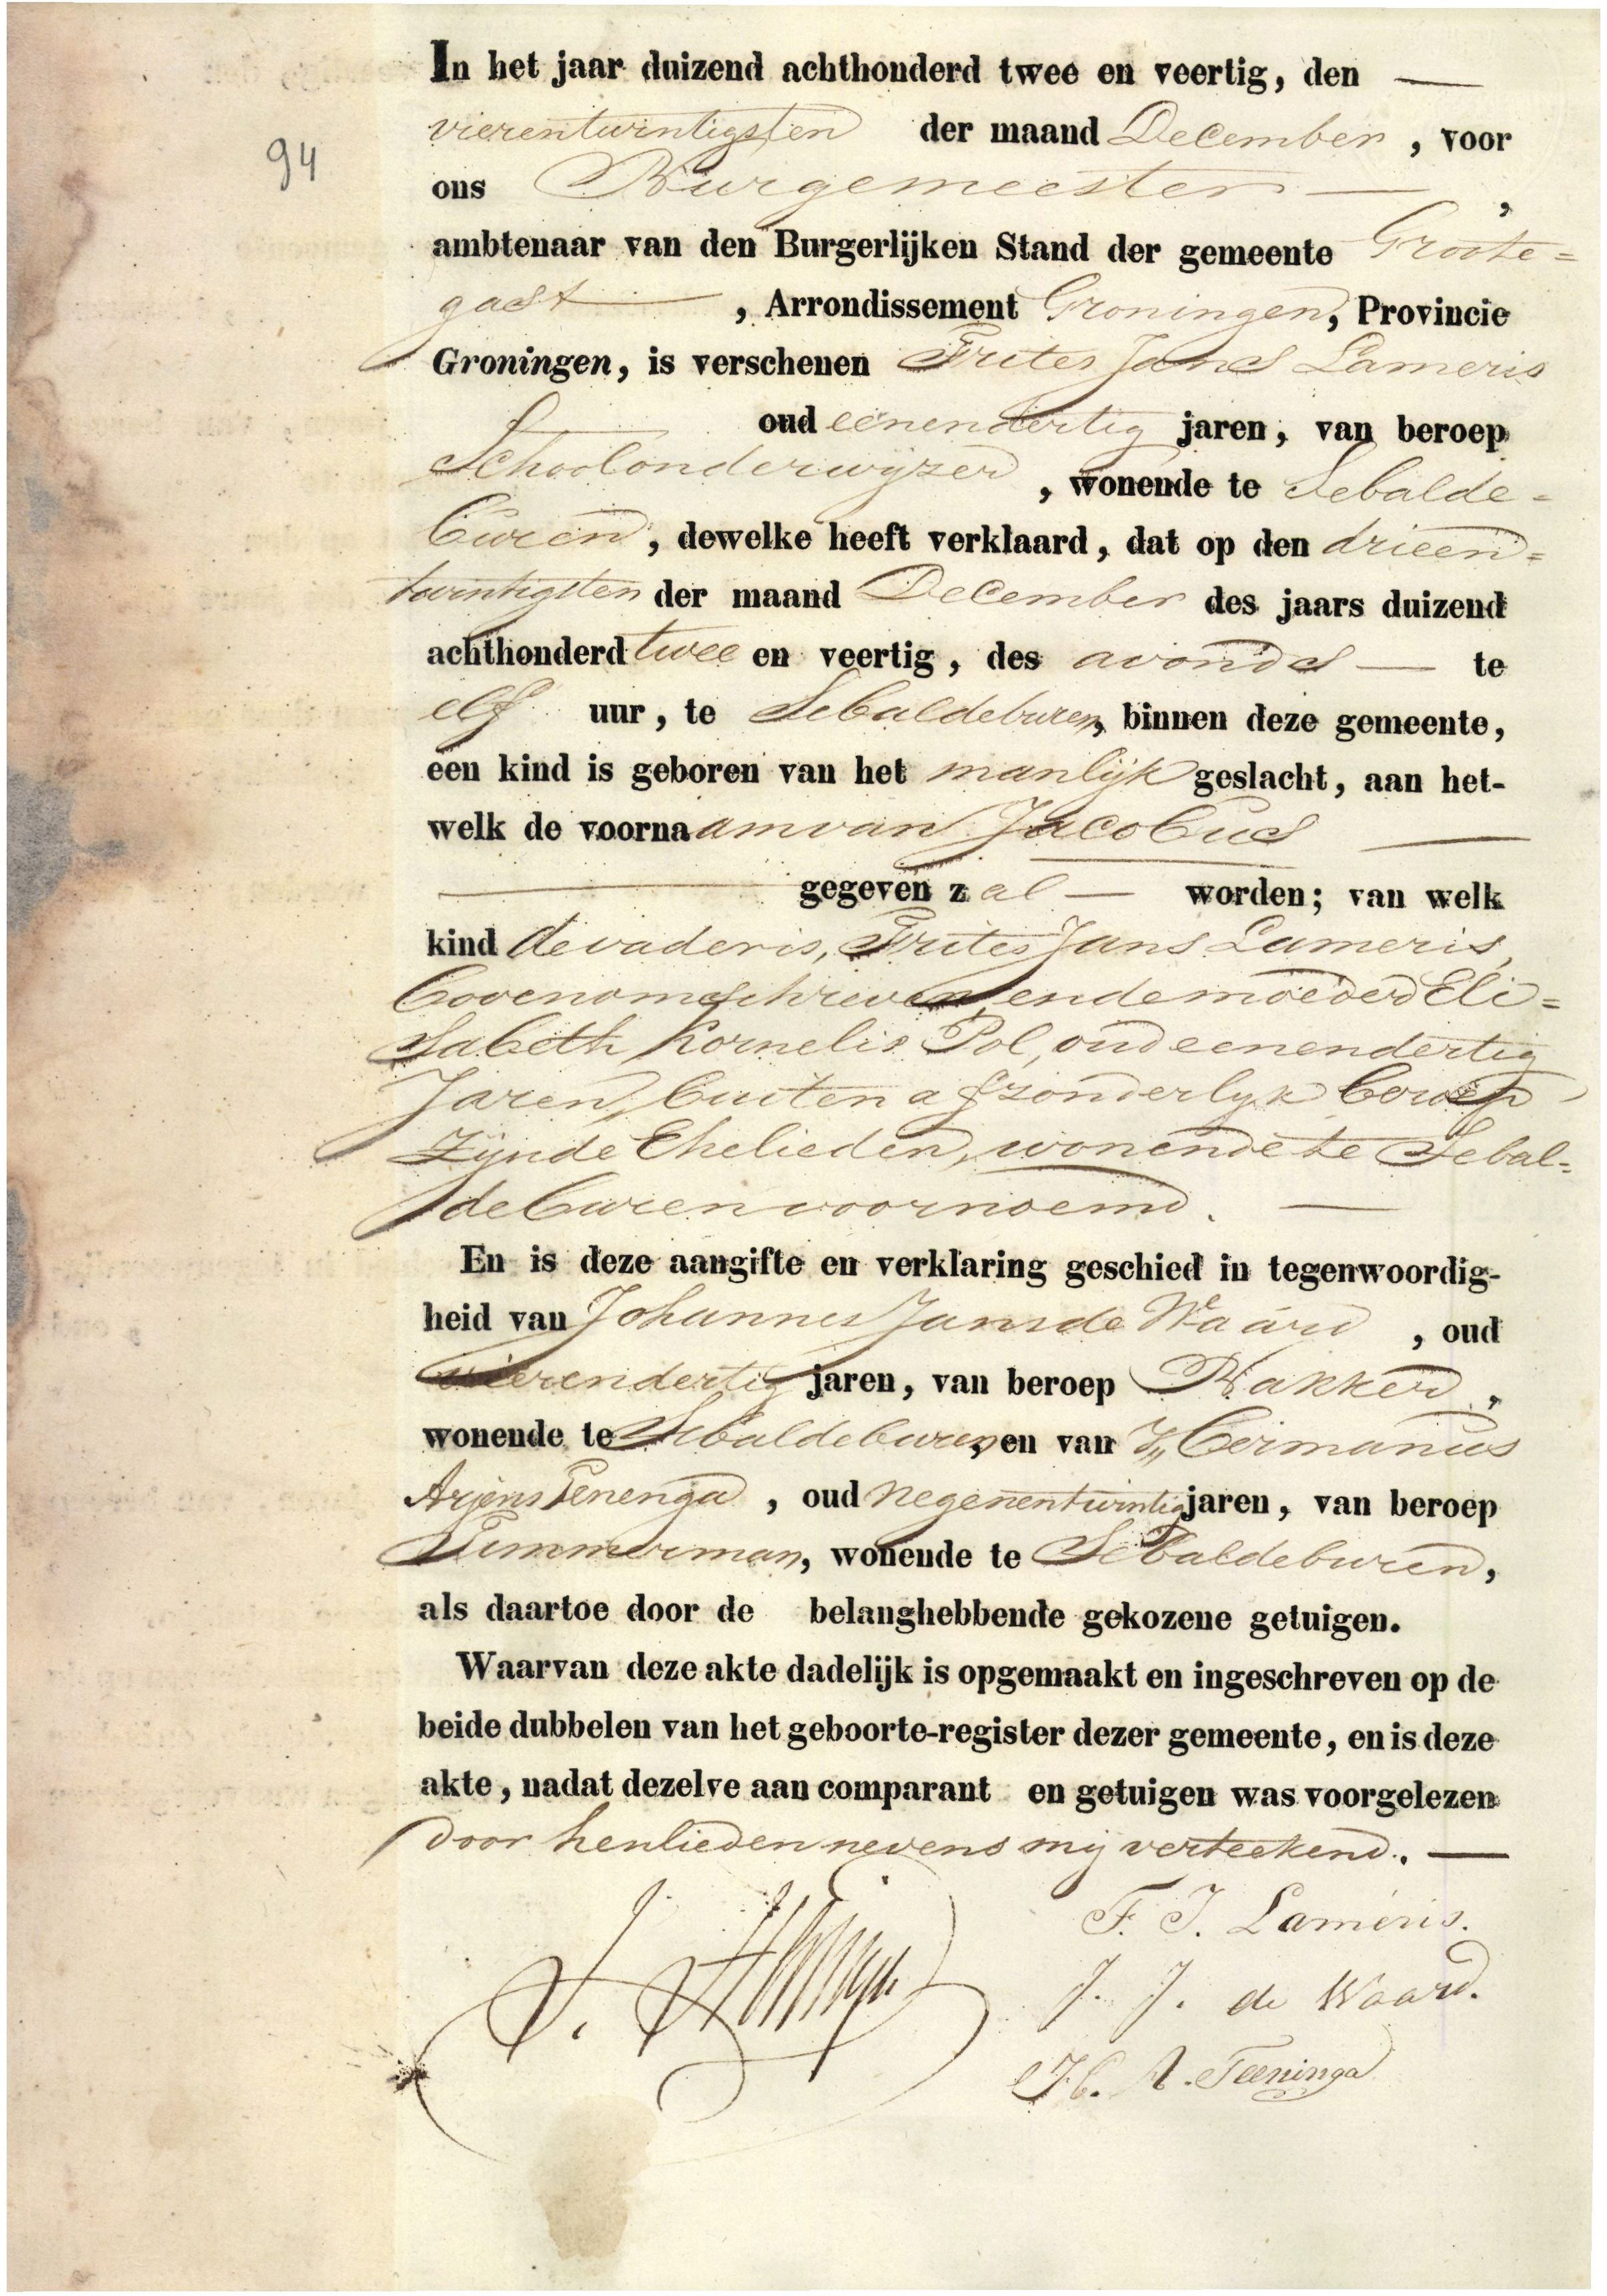 In het jaar duizend achthonderd twee en veertig, den
vierentwintigsten der maand December, voor
94
ons Burgemeester,
ambtenaar van den Burgerlijken Stand der gemeente Groote=
gast, Arrondissement Groningen, Provincie
Groningen, is verschenen Frites Jans Lameris
oud eenendertig jaren, van beroep
Schoolonderwijzer, wonende te Sebalde=
buren, dewelke heeft verklaard, dat op den drieen=
twintigsten der maand December des jaars duizend
achthonderd twee en veertig, des avonds te
elf uur, te Sebaldeburen, binnen deze gemeente,
een kind is geboren van het manlijk geslacht, aan het-
welk de voornaam van Jacobus
gegeven zal worden; van welk
kind de vader is, Frites Jans Lameris,
bovenomschreven, en de moeder Eli=
sabeth Kornelis Pol, oud eenendertig
Jaren, buiten afzonderlyk beroep
Zijnde Ehelieden, wonende te Sebal=
deburen voornoemd.
En is deze aangifte en verklaring geschied in tegenwoordig-
heid van Johannes Jans de Waard, oud
vierendertig jaren, van beroep Bakker,
wonende te Sebaldeburen, en van Hermannus
Arjens Tenenga, oud negenentwintig jaren, van beroep
Timmerman, wonende te Sebaldeburen,
als daartoe door de belanghebbende gekozene getuigen.
Waarvan deze akte dadelijk is opgemaakt en ingeschreven op de
beide dubbelen van het geboorte-register dezer gemeente, en is deze
akte, nadat dezelve aan comparant en getuigen was voorgelezen
door henlieden nevens mij verteekend.
F. J. Lameris.
J. J. de Waard.
H. A. Teeninga